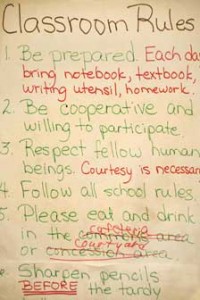 Classroom Rules
1. Be prepared. Each da
bring notebook, textbook,
writing utensil, homework.
2. Be cooperative and
willing to participate.
3. Respect fellow human
beings. Courtesy is necessar
4. Follow all school rules.
5. Please eat and drink
cafeteria
in the commons area
Courtyard
or concession area.
Sharpen pencils
BEFORE the tardy